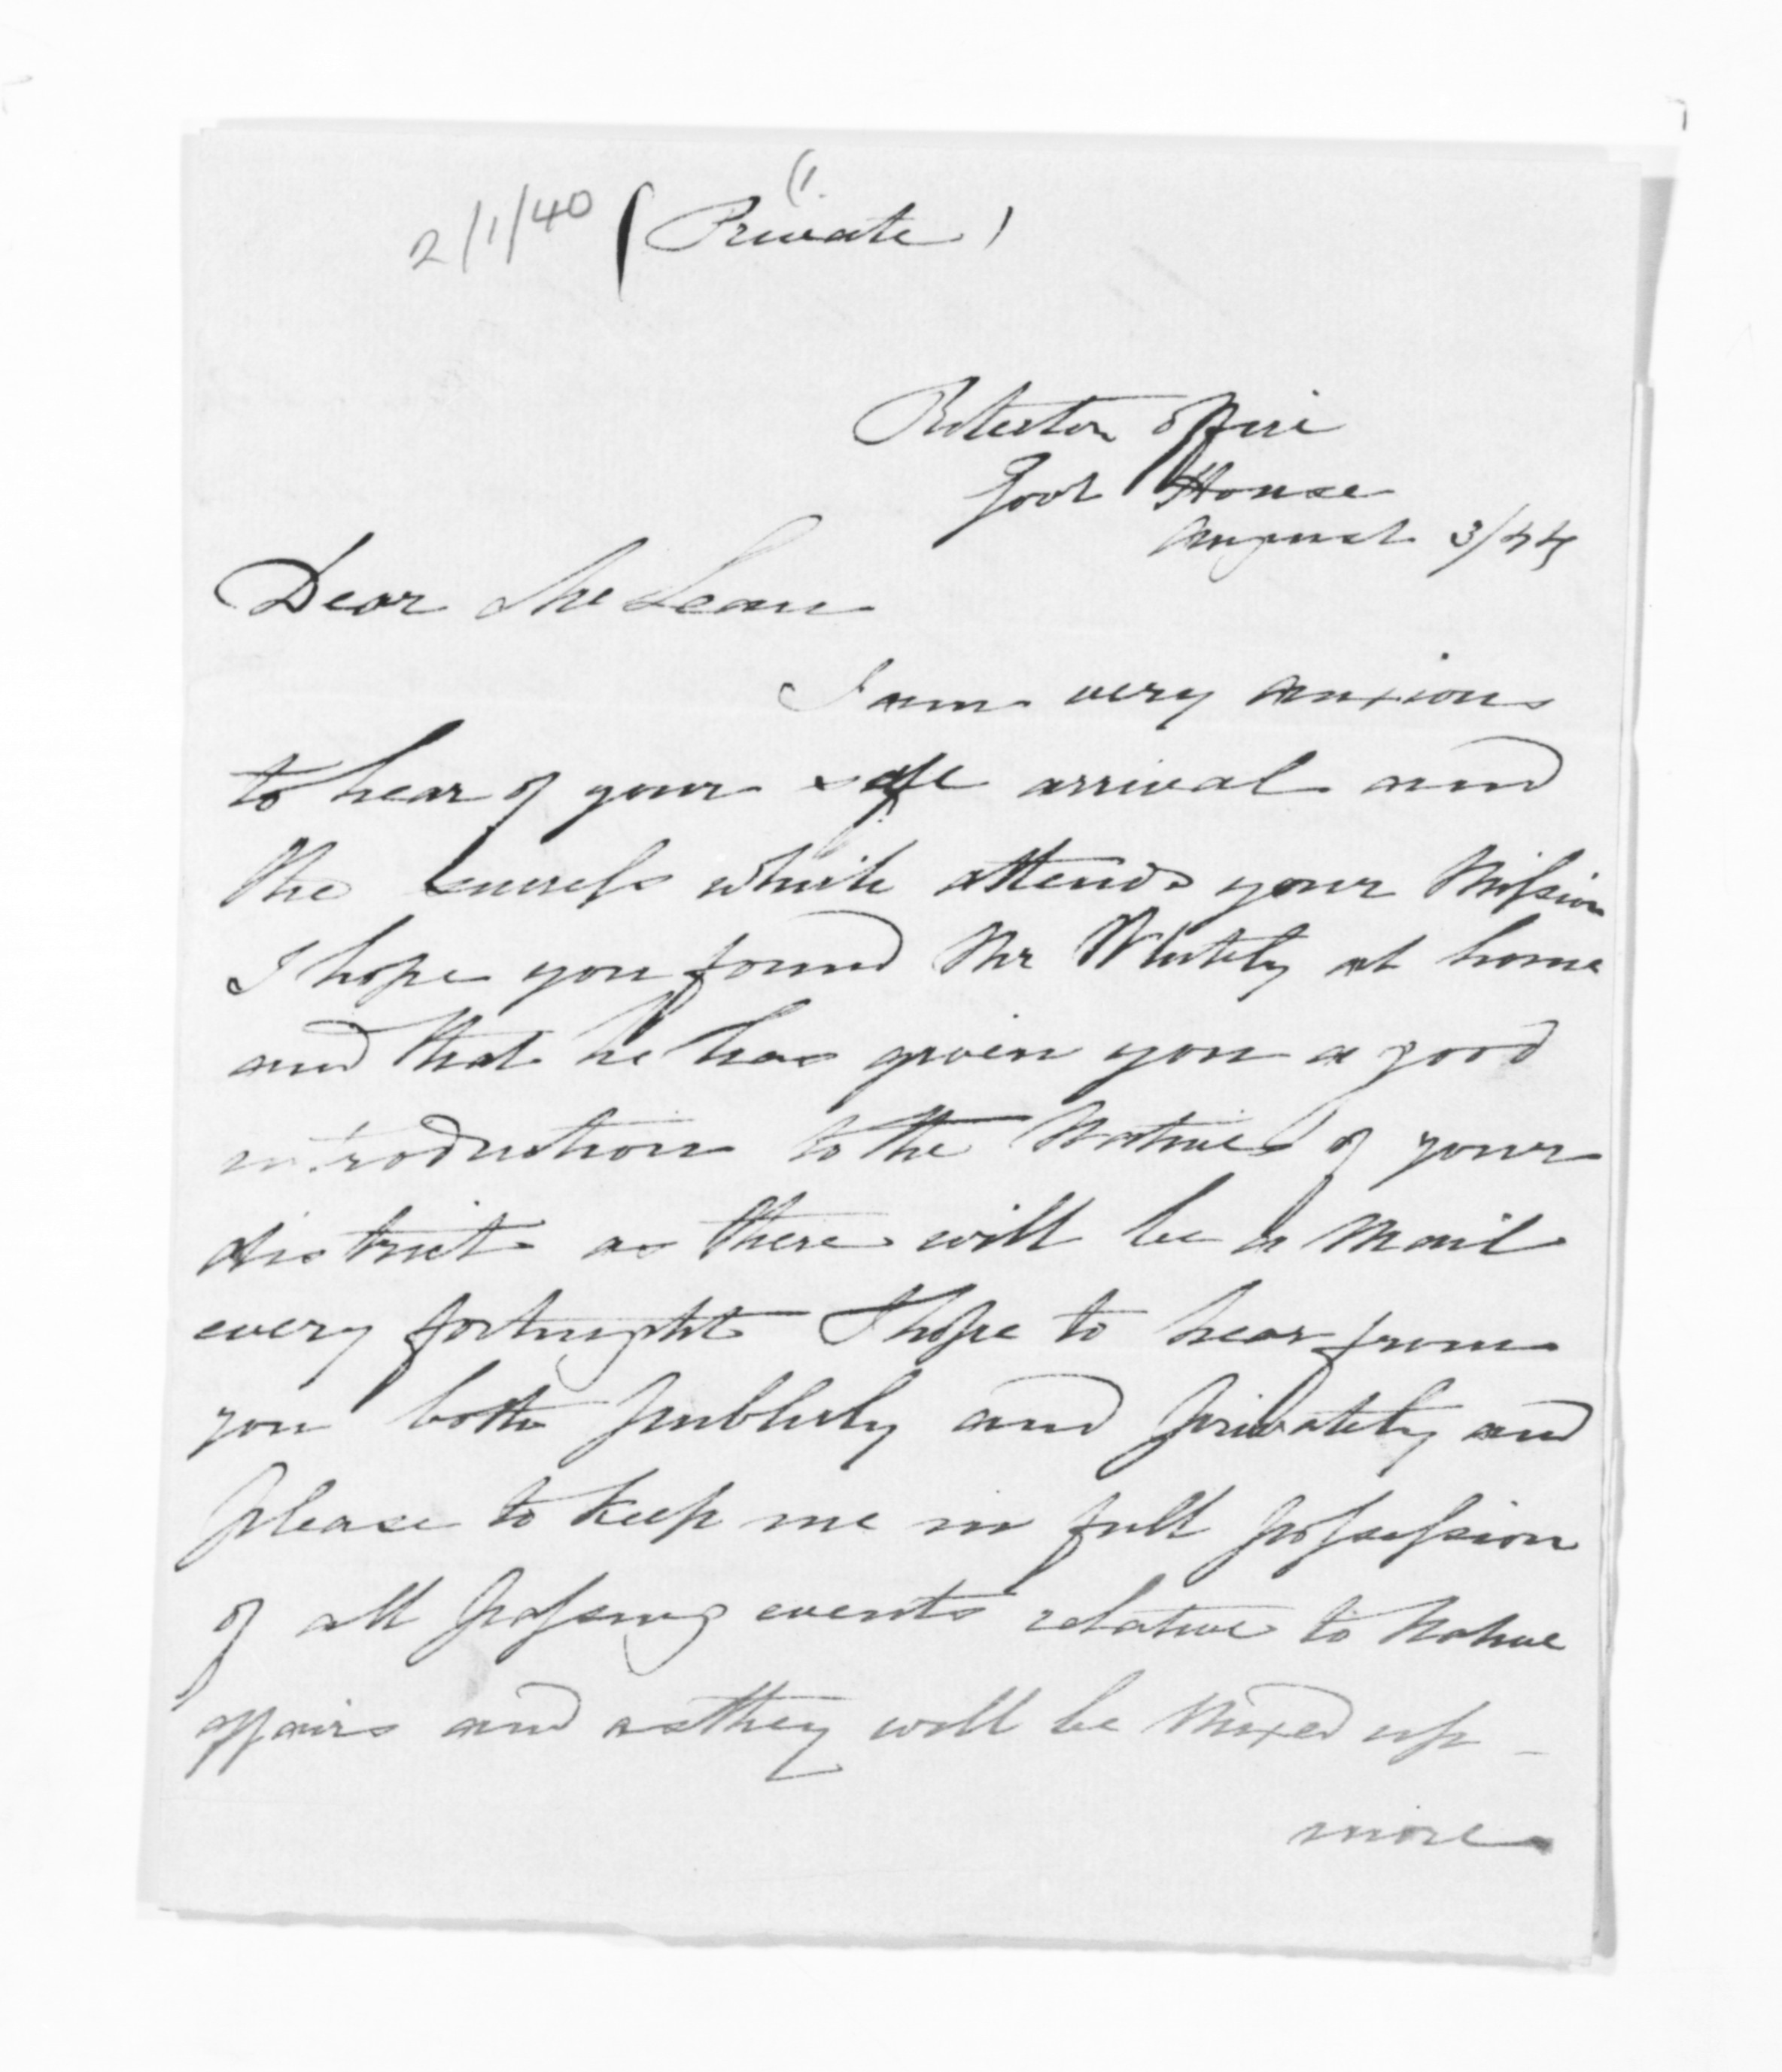 (1.
2/1/40 (Private)
Protector Office
Govt House
August 3/44
Dear McLean
I am very anxious
to hear of your safe arrival and
the success which attends your Mission
I hope you found Mr Whitely at home
and that he has given you a good
introduction to the Natives of your
district as there will be a Mail
every fortnight I hope to hear from
you both publicly and privately and
please to keep me in full possession
of all passing events relative to Native
affairs and as they will be mixed up -
more